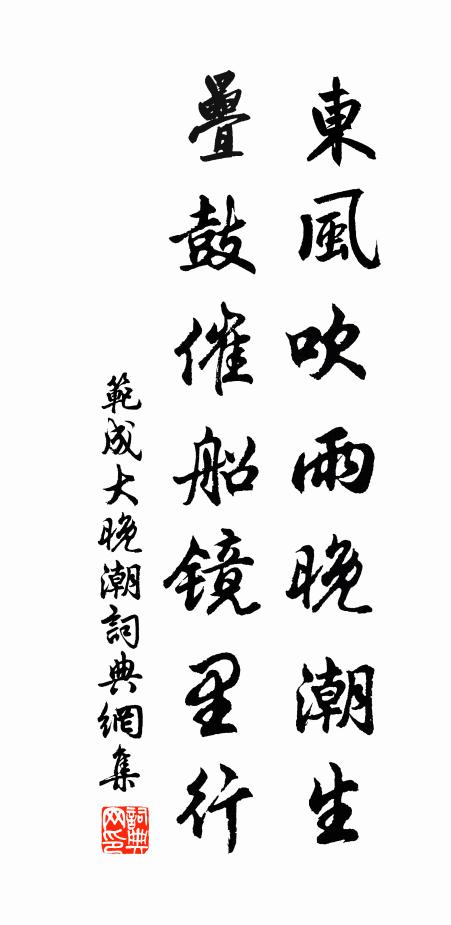 東風吹雨晚潮生
疊鼓催船镜里行
範成大晚潮詞典網集
詞典网印